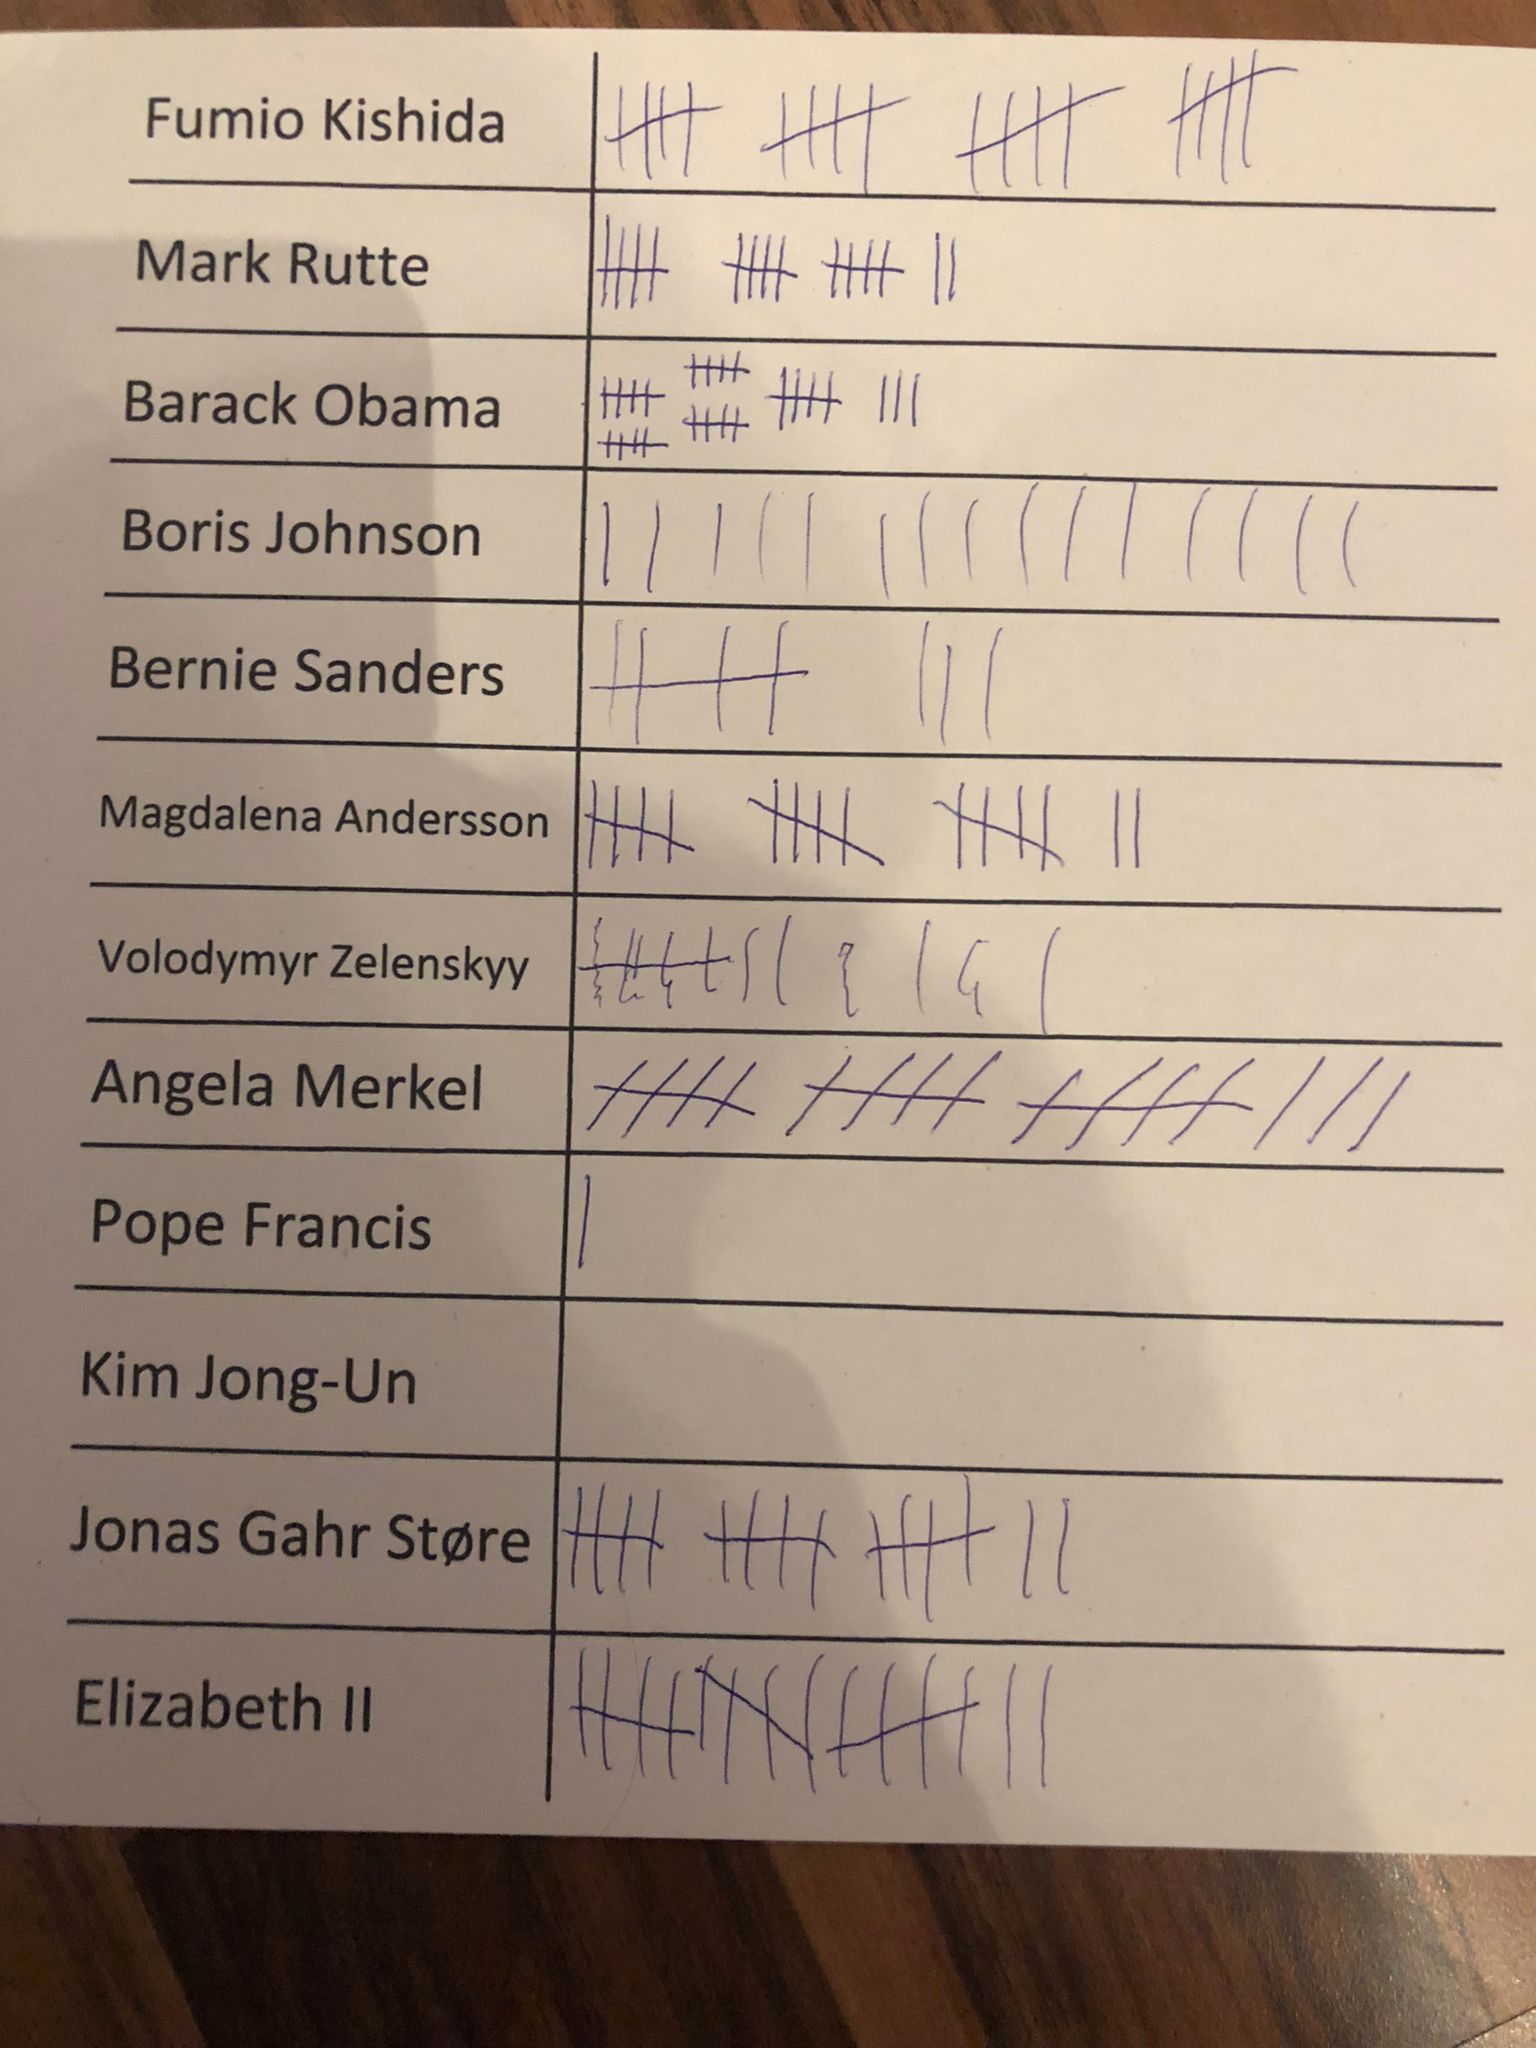 Fumio Kishida
Mark Rutte
Barack Obama
Boris Johnson
Bernie Sanders
Magdalena Andersson
Volodymyr Zelenskyy
Angela Merkel
Pope Francis
Kim Jong-Un
Jonas Gahr Støre
Elizabeth II